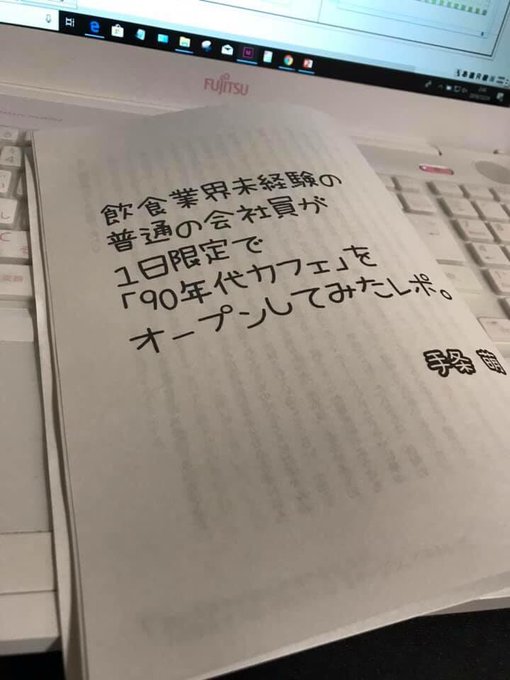 FUJITSU
飲食業界未経験の
普通の会社員が
1日限定で
「90年代カフェ」を
オープンしてみたレポ。
手条 萌